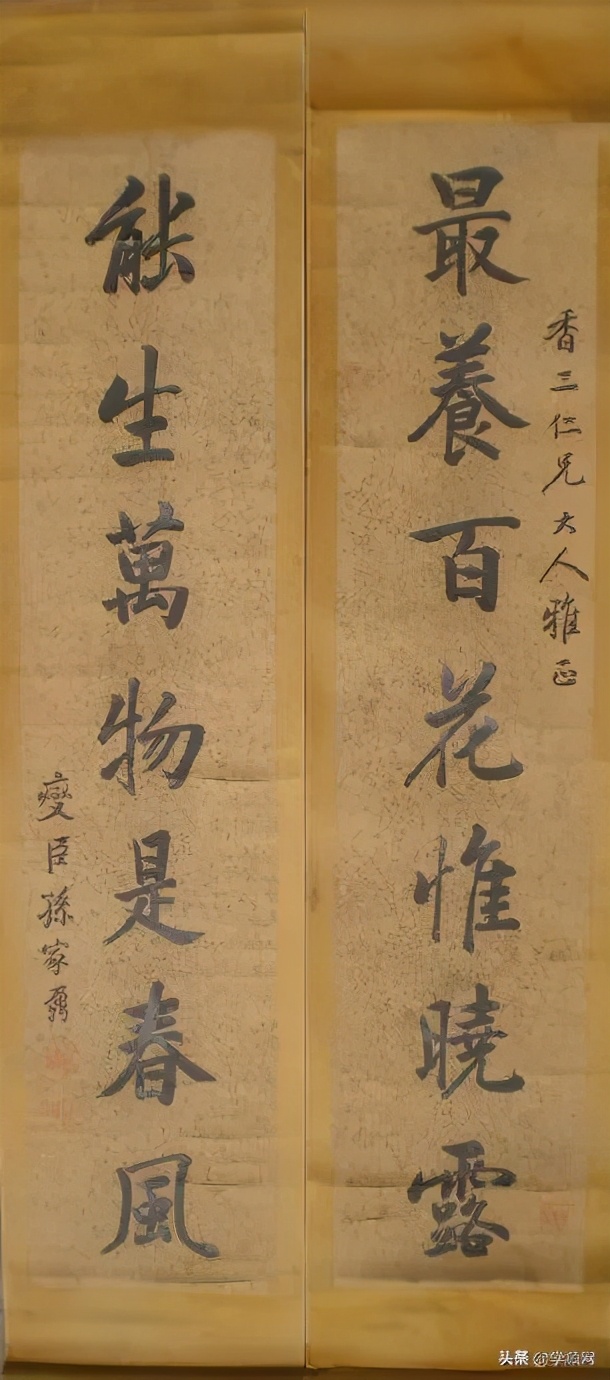 香三仁兄大人雅正
最養百花惟曉露
能生萬物是春風
燮臣孫家鼐
头条